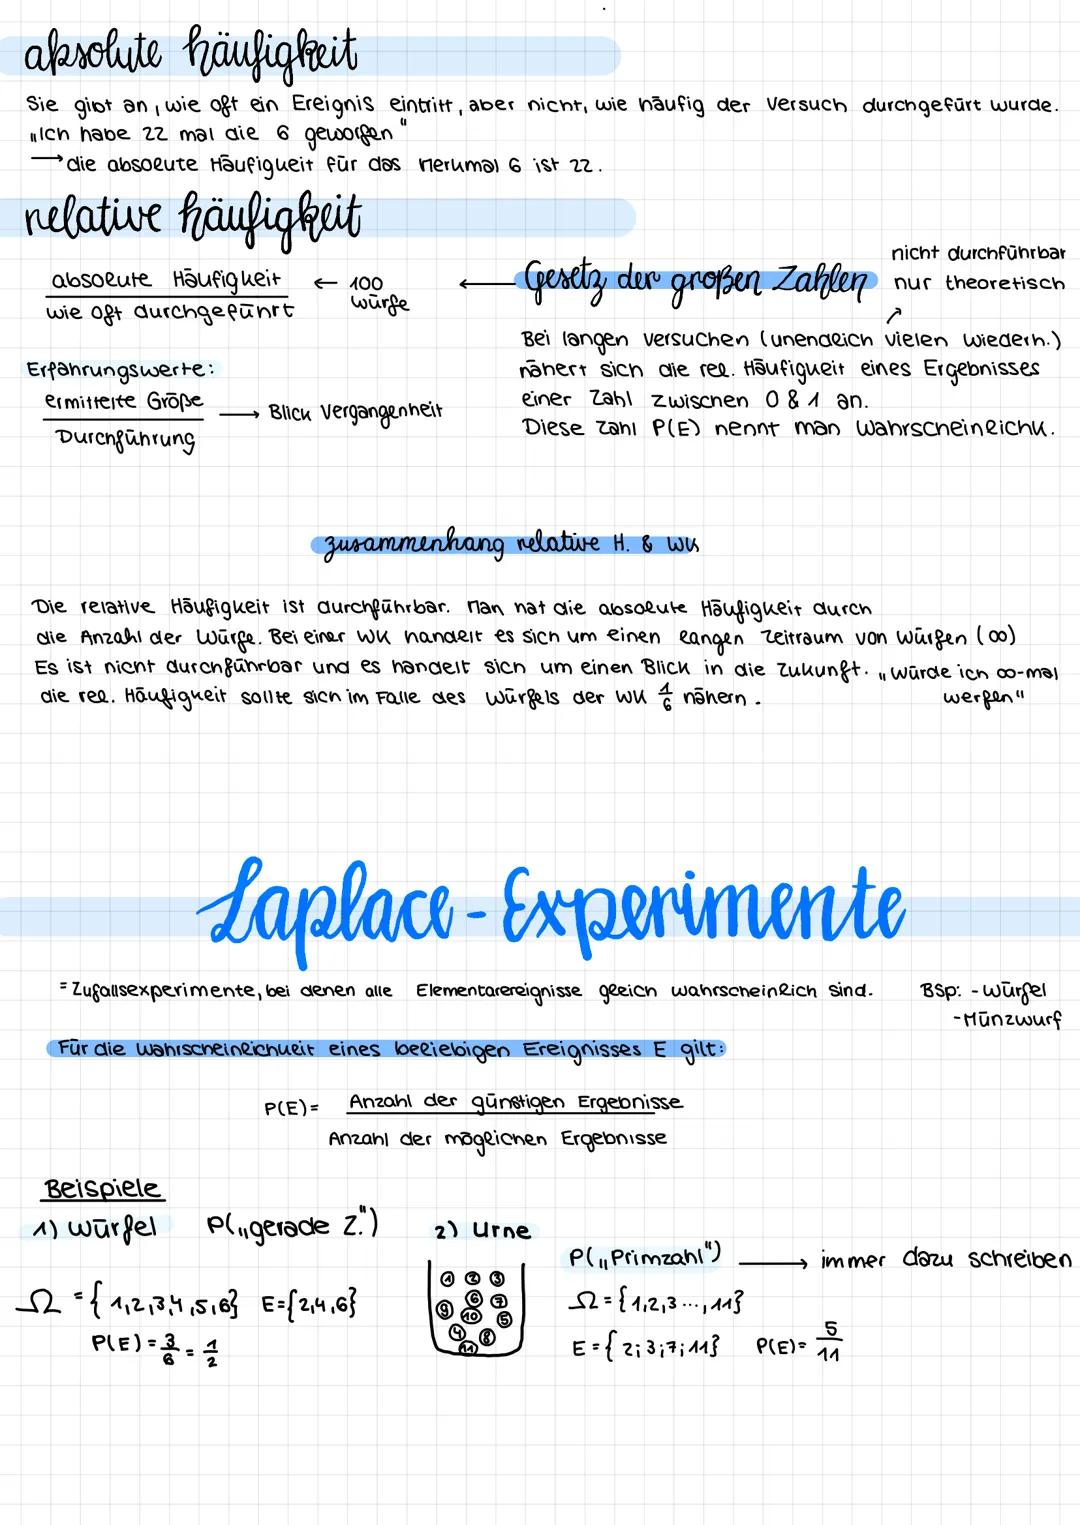 absolute häufigkeit
Sie gibt an, wie oft ein Ereignis eintritt, aber nicht, wie häufig der Versuch durchgefürt wurde.
„Ich habe 22 mal die 6 geworfen"
→ die absolute Häufigkeit für das Merkmal 6 ist 22.
relative häufigkeit
absolute Häufigkeit ← 100 würfe
wie oft durchgeführt
← Gesetz der großen Zahlen
nicht durchführbar
nur theoretisch
Bei langen versuchen (unendlich vielen wiederh.)
nähert sich die rel. Häufigkeit eines Ergebnisses
einer Zahl zwischen 0 & 1 an.
Diese Zahl P(E) nennt man Wahrscheinlichk.
Erfahrungswerte:
ermittelte Größe
Durchführung
→ Blick Vergangenheit
zusammenhang relative H. & WK
Die relative Häufigkeit ist durchführbar. Man hat die absolute Häufigkeit durch
die Anzahl der Würfe. Bei einer WK handelt es sich um einen langen Zeitraum von würfen (∞)
Es ist nicht durchführbar und es handelt sich um einen Blick in die Zukunft. „würde ich ∞-mal
werfen"
die rel. Häufigkeit sollte sich im Falle des Würfels der WK 1/6 nähern.
Laplace-Experimente
= Zufallsexperimente, bei denen alle Elementarereignisse gleich wahrscheinlich sind.
Bsp: - Würfel
- Münzwurf
Für die Wahrscheinlichkeit eines beliebigen Ereignisses E gilt:
P(E)= Anzahl der günstigen Ergebnisse
Anzahl der möglichen Ergebnisse
Beispiele
1) Würfel P(„gerade Z.")
Ω = {1,2,3,4,5,6} E={2,4,6}
P(E) = 3/6 = 1/2
2) Urne
1 2 3
9 6 7
10 5
4 8
11
P(„Primzahl") → immer dazu schreiben
Ω={1,2,3...,11}
E={2;3;7;11} P(E)= 5/11